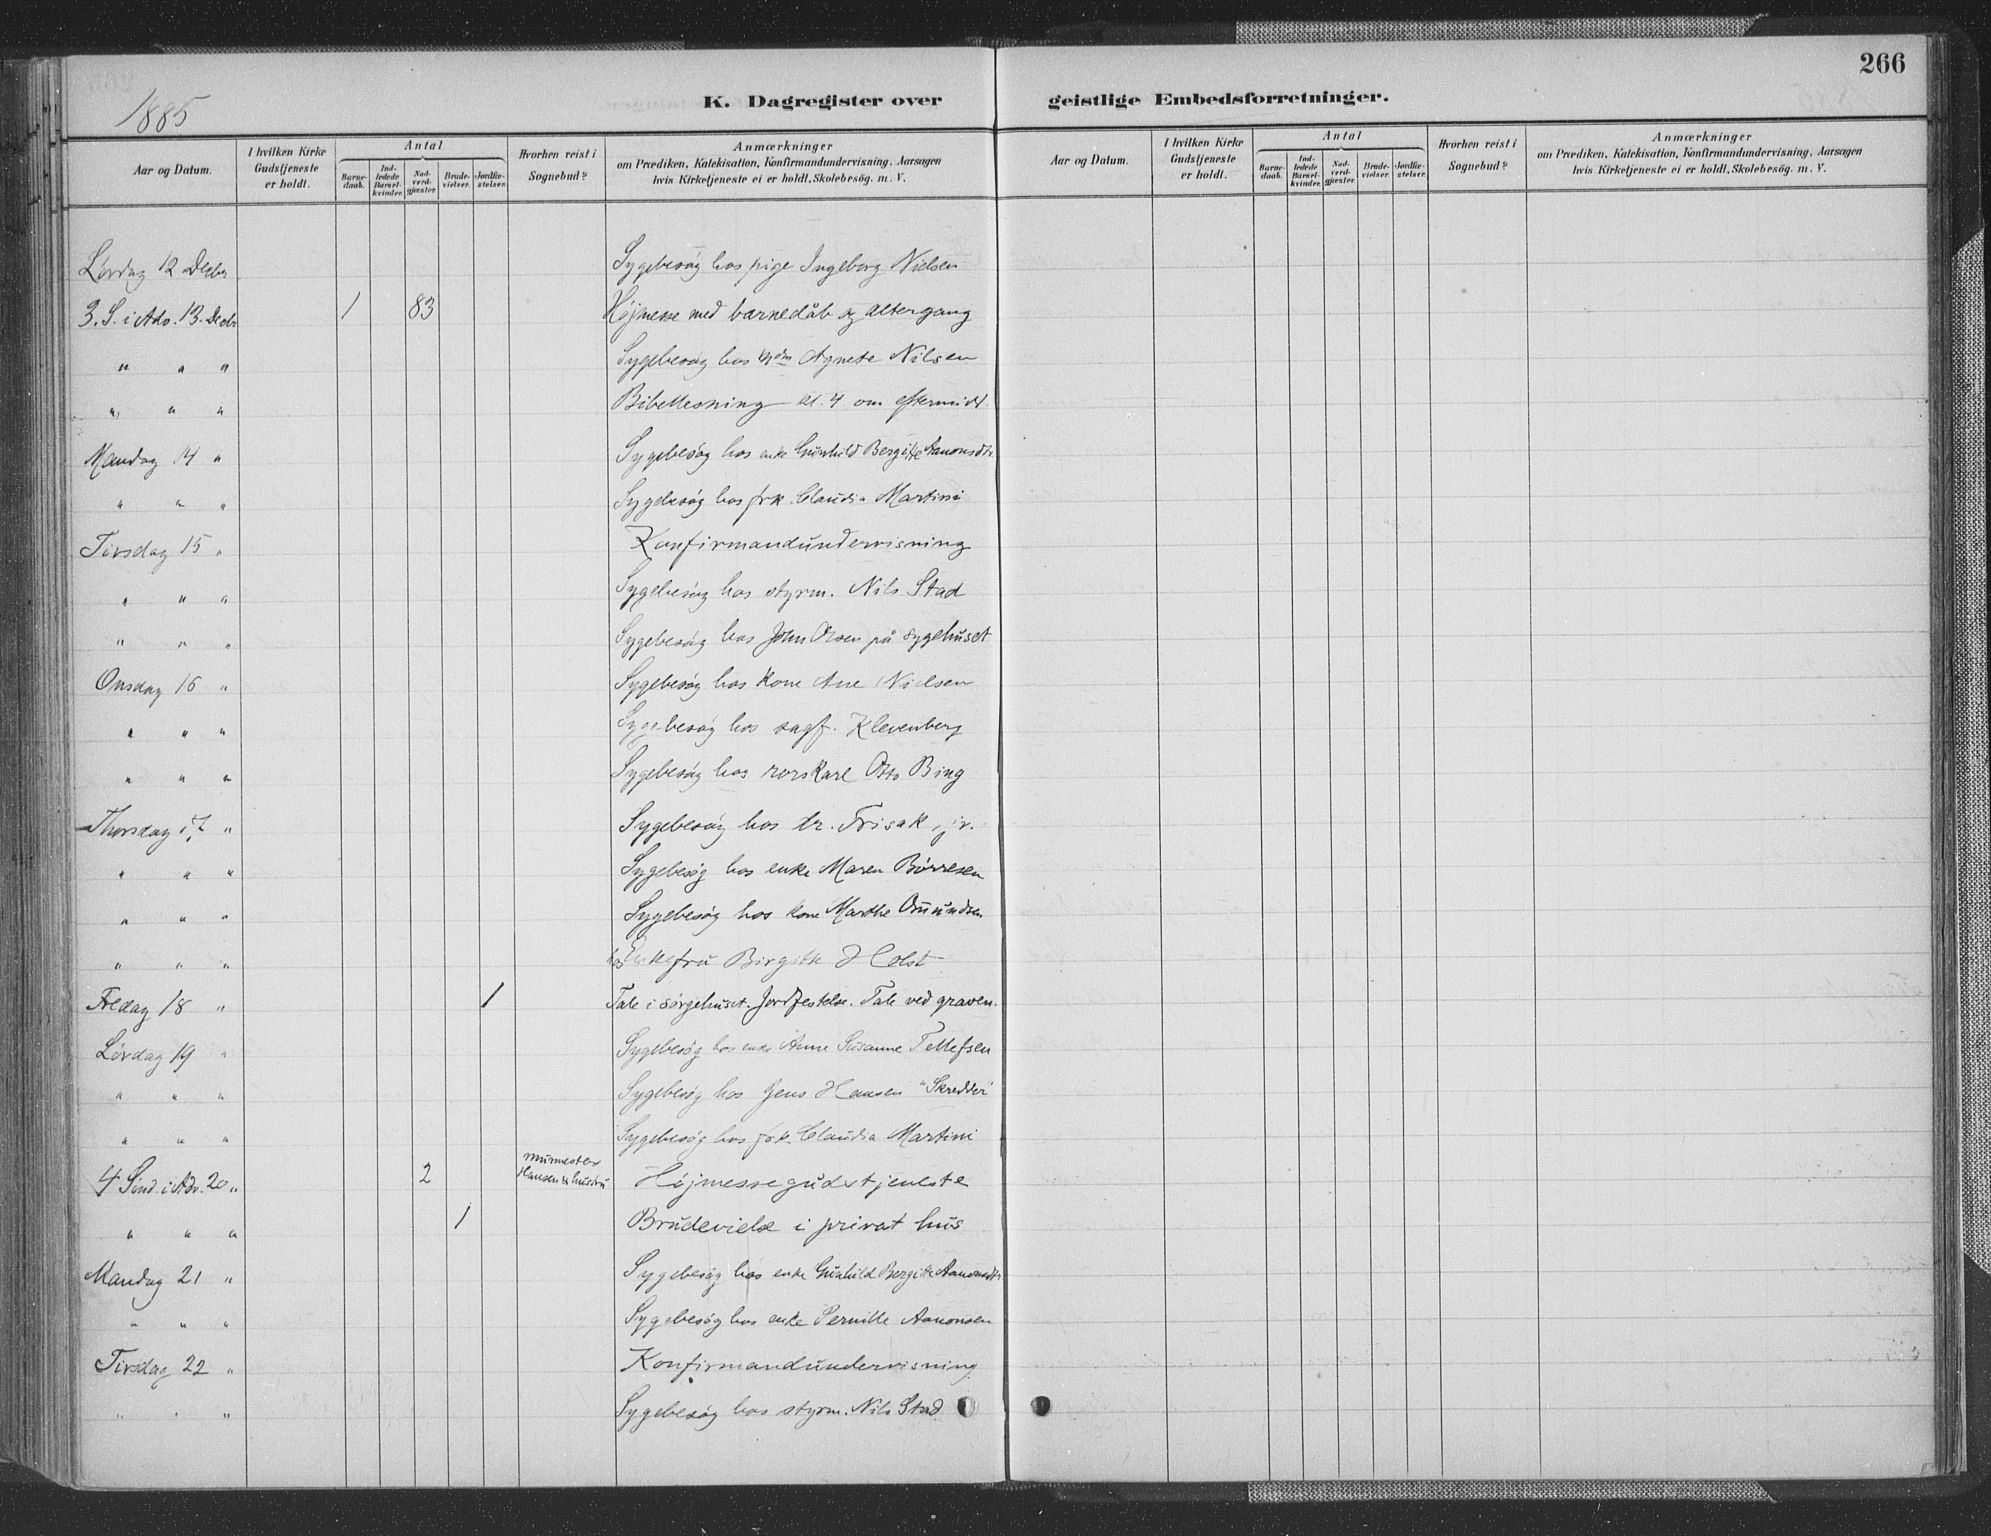 266
1885
K. Dagregister over geistlige Embedsforretninger.
Aar og Datum. I hvilken Kirke Gudstjeneste er holdt. Antal Barnedaab. Indledede Barselkvinder. Nadverdgjæster. Brudevielser. Jordfæstelser. Hvorhen reist i Sognebud? Anmærkninger om Prædiken, Katekisation, Konfirmandundervisning, Aarsagen hvis Kirketjeneste ei er holdt, Skolebesøg. m. V.
Aar og Datum. I hvilken Kirke Gudstjeneste er holdt. Antal Barnedaab. Indledede Barselkvinder. Nadverdgjæster. Brudevielser. Jordfæstelser. Hvorhen reist i Sognebud? Anmærkninger om Prædiken, Katekisation, Konfirmandundervisning, Aarsagen hvis Kirketjeneste ei er holdt, Skolebesøg. m. V.
Lørdag 12 Decbr Sygebesøg hos pige Ingeborg Nielsen
3. S. i Adv. 13. Decbr 1 83 Højmesse med barnedåb og altergang
" " " Sygebesøg hos Agnete Nilsen
" " " Bibellesning kl. 4 om eftermidd.
Mandag 14 " Sygebesøg hos enke Gunhild Bergitte Aanonsdtr.
" " " Sygebesøg hos frk. Claudia Martini
Tirsdag 15 " Konfirmandundervisning
" " " Sygebesøg hos styrm. Nils Stad
" " " Sygebesøg hos John Olsen på sygehuset
Onsdag 16 " Sygebesøg hos kone Ane Nielsen
" " " Sygebesøg hos sagf. Klevenberg
" " " Sygebesøg hos rorskarl Otto Bing
Thorsdag 17 " Sygebesøg hos dr. Frisak, jr.
" " " Sygebesøg hos enke Maren Børresen
" " " Sygebesøg hos kone Marthe Omundsen
" " " hos Enkefru Birgitte Holst
Fredag 18 " 1 Tale i sørgehuset. Jordfestelse. Tale ved graven.
Lørdag 19 " Sygebesøg hos enke Anne Susanne Tellefsen
" " " Sygebesøg hos Jens Hansen "Skredder"
" " " Sygebesøg hos frk. Claudia Martini
4 Sønd. i Adv. 20 " 2 murmester Hansen & hustru Højmessegudstjeneste
" " " 1 Brudevielse i privat hus
Mandag 21 " Sygebesøg hos enke Gunhild Bergitte Aanonsdtr
" " " Sygebesøg hos enke Pernille Aanonsen
Tirsdag 22 " Konfirmandundervisning
" " " Sygebesøg hos styrm. Nils Stad